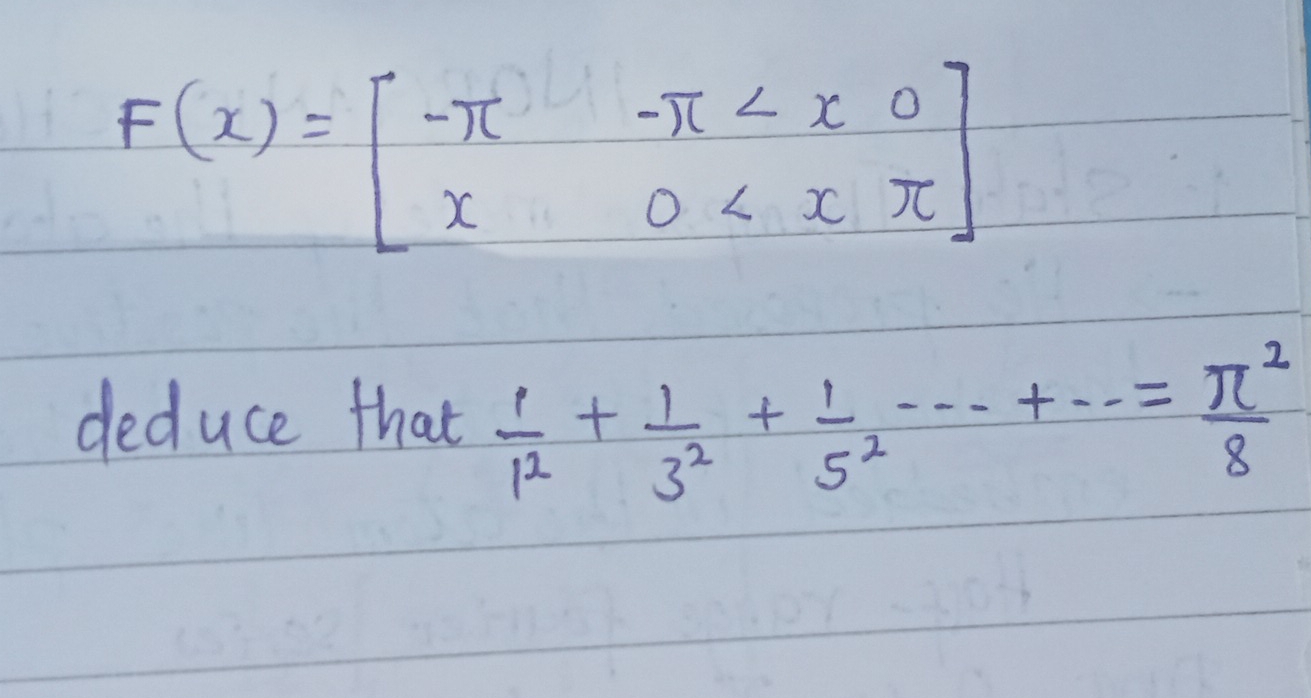 F(x) = [ -π -π < x 0
x 0 < x π ]
deduce that 1/1² + 1/3² + 1/5² --- + -- = π²/8